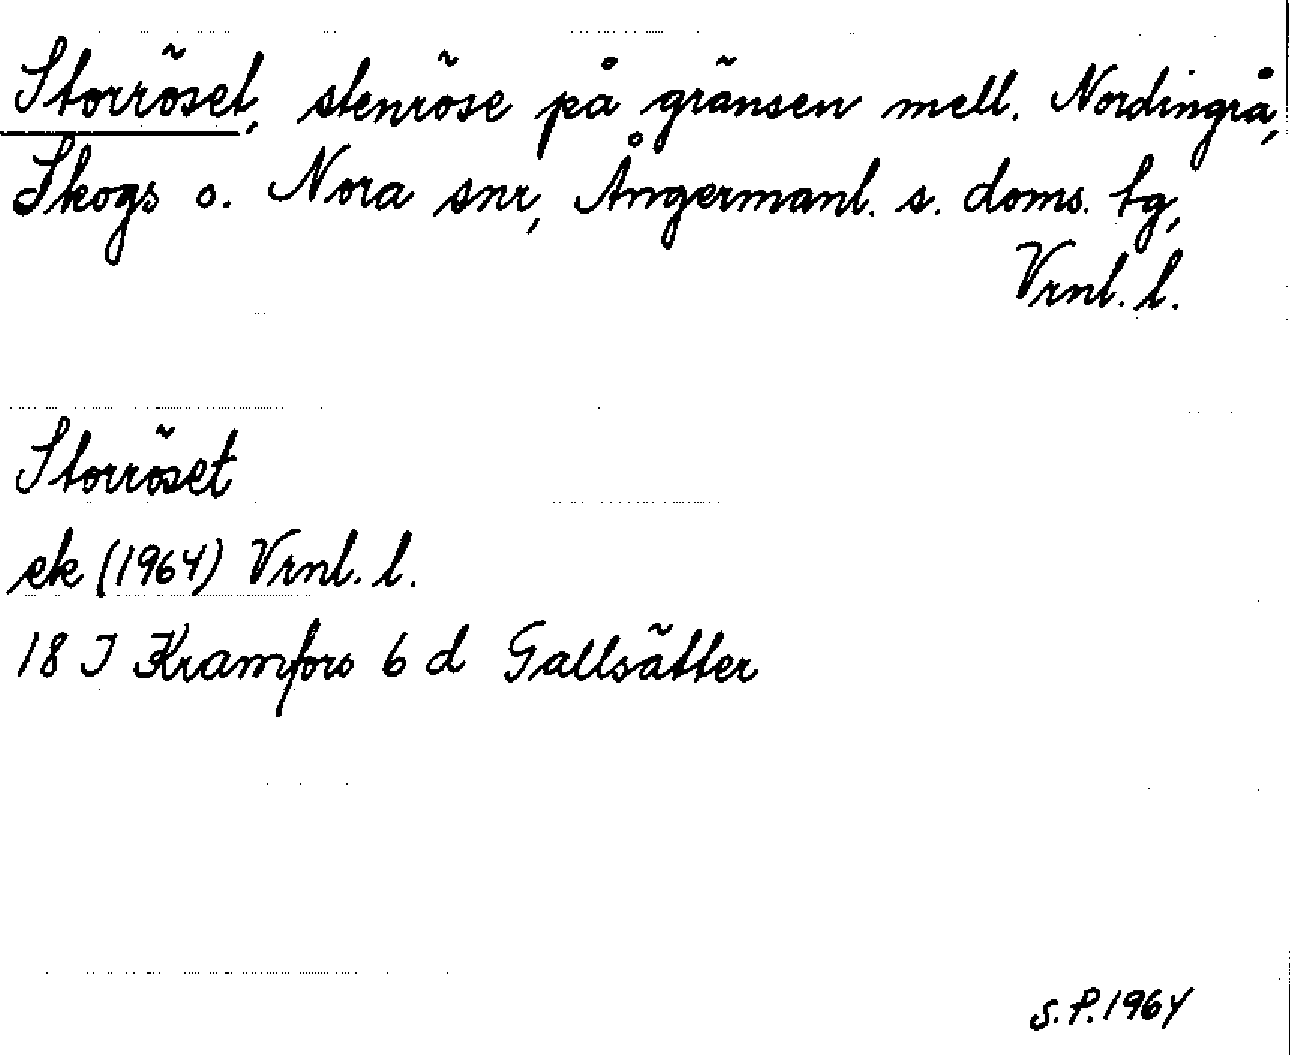 Storröset, stenröse på gränsen mell. Nordingrå,
Skogs o. Nora snr, Ångermanl. s. doms. tg,
Vrnl. l.
Storröset
ek (1964) Vrnl. l.
18 I Kramfors 6 d Gallsätter
S.P. 1964